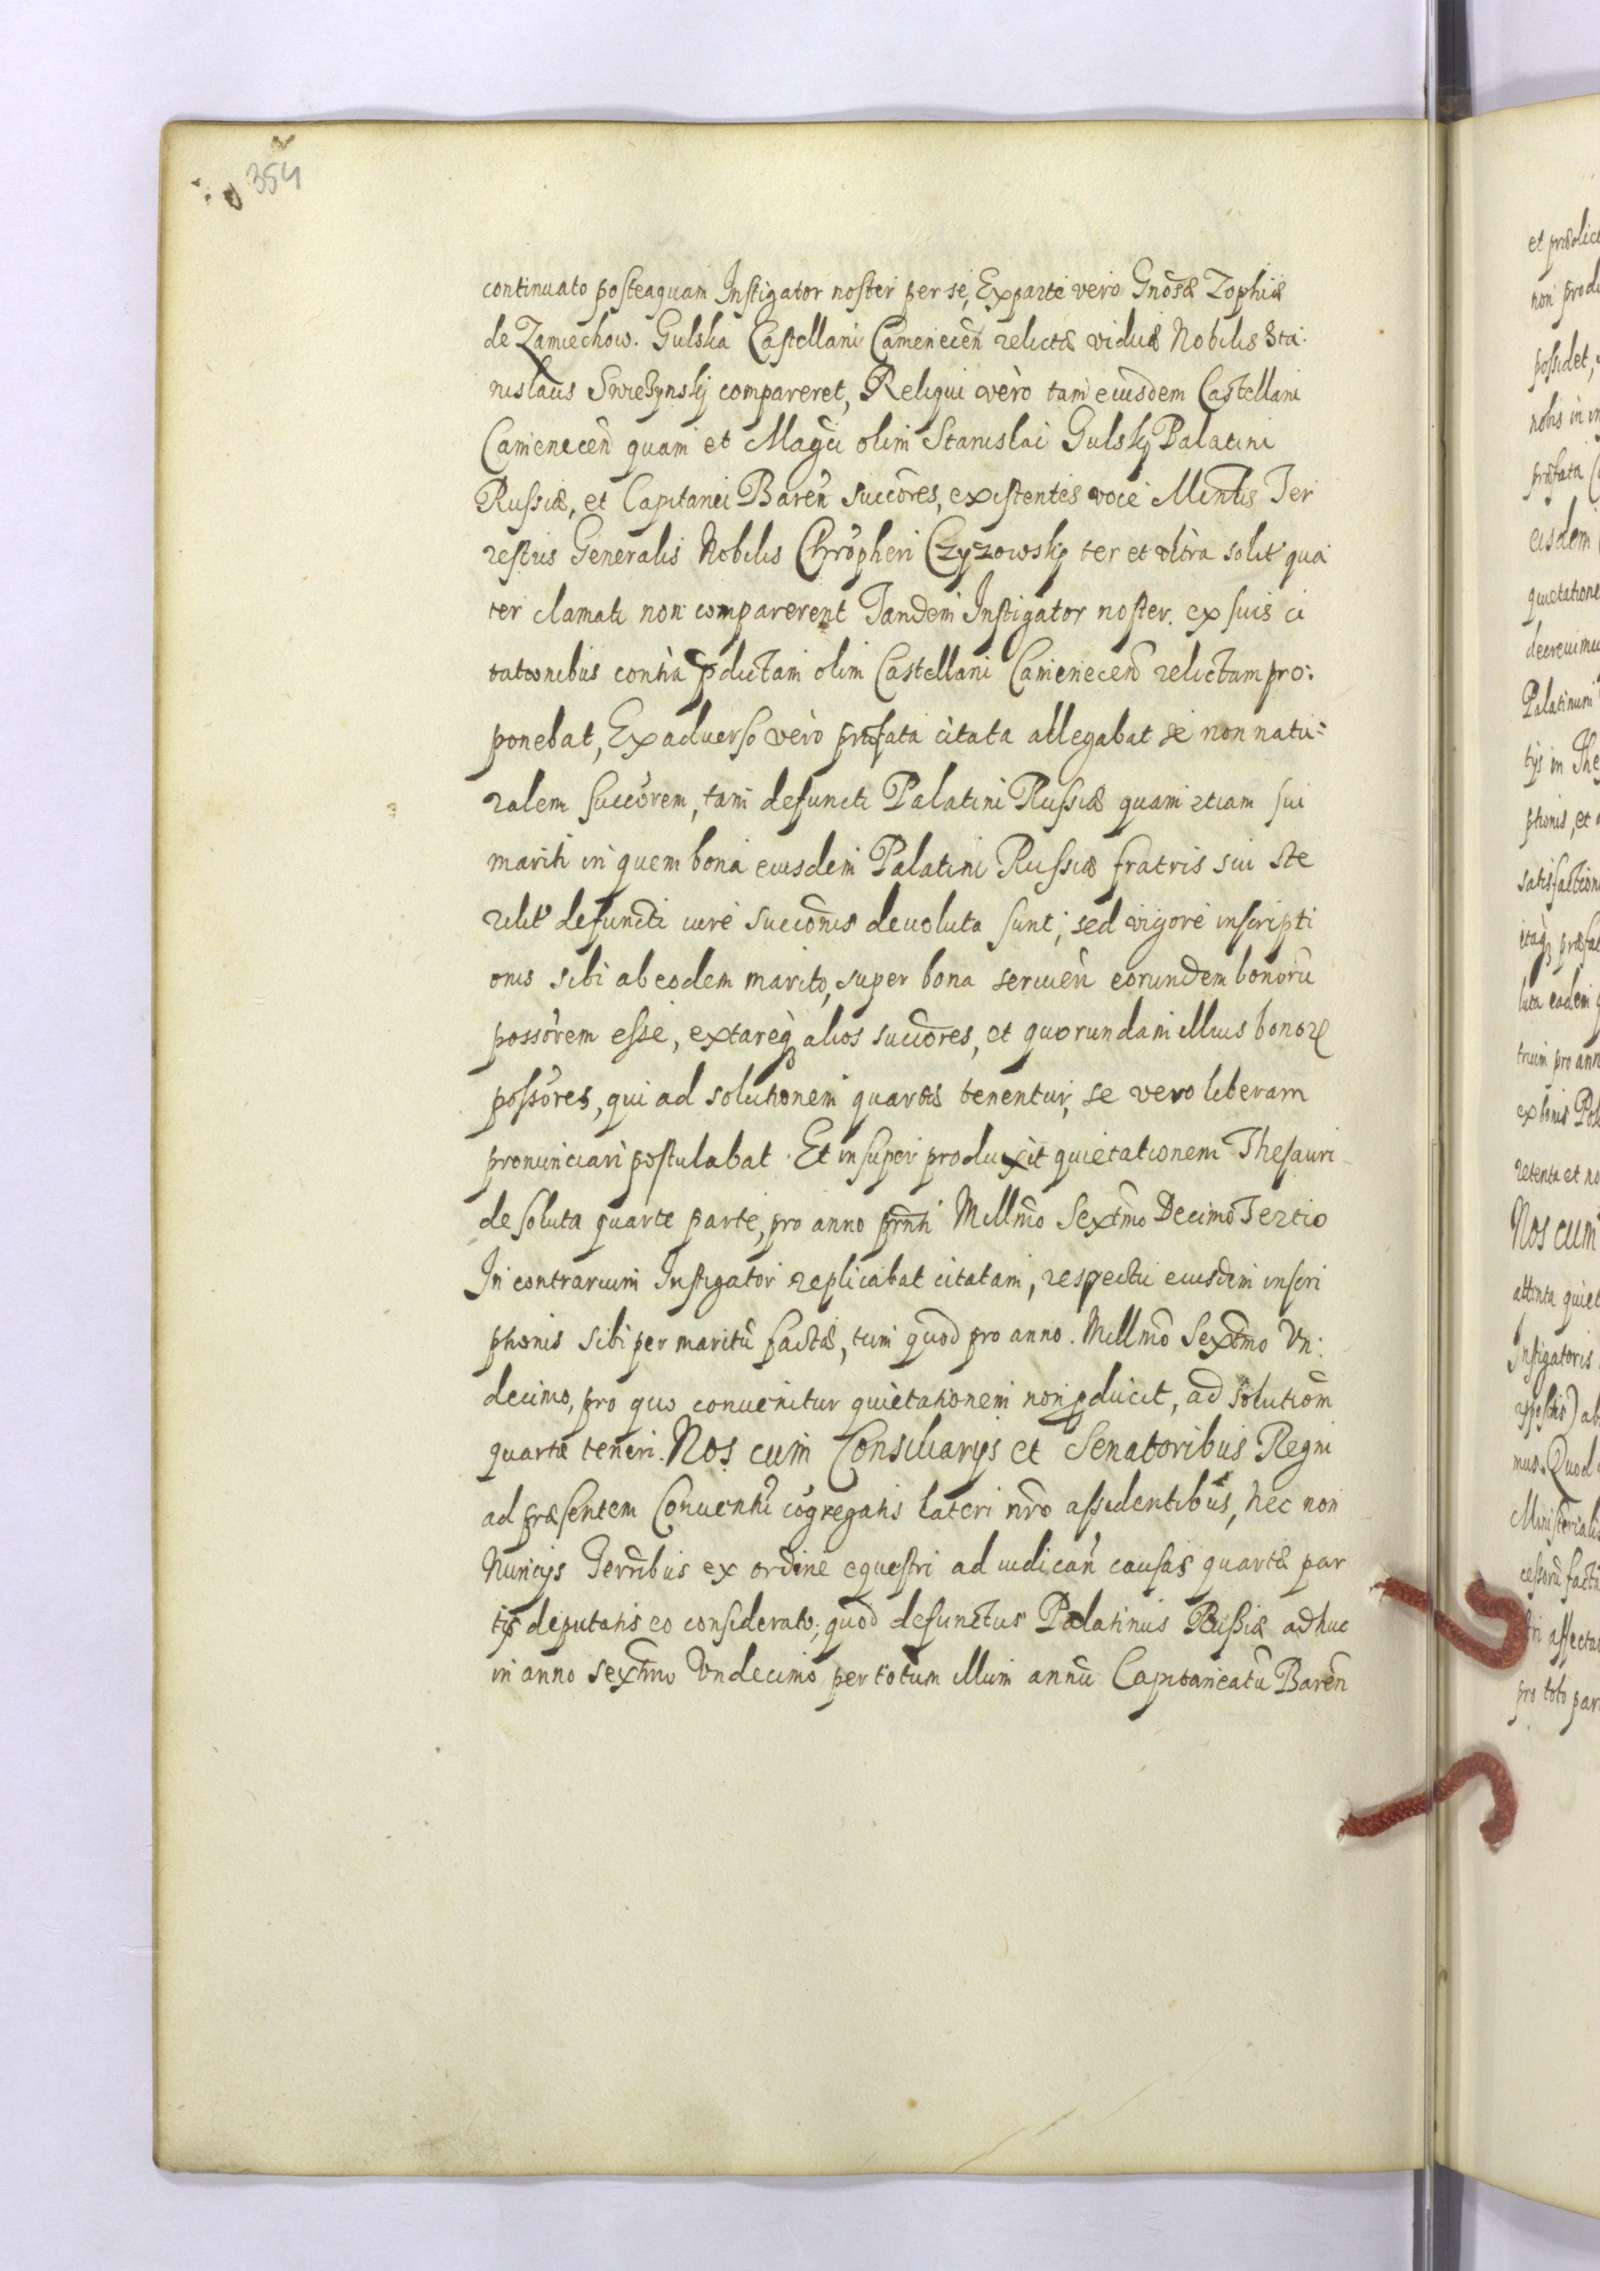 354
continuato posteaquam Instigator noster per se, Ex parte vero Gnosæ Zophiæ
de Zamiechow. Gulska Castellani Camenecen relictæ viduæ Nobilis Sta:
nislaus compareret, Reliqui vero tam eiusdem Castellani
Camenecen quam et Magci olim Stanislai Gulskj Palatini
Russiæ, et Capitanei Baren succores, existentes voce Minlis Ter
restris Generalis Nobilis Chropheri Czyzowskj ter et vltra solit qua
ter clamati non comparerent Tandem Instigator noster. ex suis ci
tationibus contra pdictam olim Castellani Camenecen relictam pro:
ponebat, Ex aduerso vero præfata citata allegabat se non natu=
ralem succorem, tam defuncti Palatini Russiæ quam etiam sui
mariti in quem bona eiusdem Palatini Russiæ fratris sui ste
rilit defuncti iure succionis deuoluta sunt; sed vigore inscripti
onis sibi ab eodem marito, super bona seruien eorundem bonoru
possorem esse, extareq alios succores, et quorundam illius bonor
possores, qui ad solutionem quartæ tenentur, se vero liberam
pronunciari postulabat. Et insuper produxit quietationem Thesauri
de soluta quarte parte, pro anno prnti Millmo Sextmo Decimo Tertio
In contrarium Instigator replicabat citatam, respectu eiusdem inscri
ptionis sibi per maritu factæ, tum quod pro anno. Millmo Sextmo Vn:
decimo, pro quo conuenitur quietationem non pducit, ad solutiom
quartæ teneri. Nos cum Consiliarijs et Senatoribus Regni
ad præsentem Conuentu cogregatis lateri nro assidentibus, nec non
Nuncijs Terribus ex ordine equestri ad iudican causas quartæ par
tis deputatis eo considerato, quod defunctus Palatinus Russiæ adhuc
in anno sextmo Vndecimo per totum illum annu Capitaneatu Baren